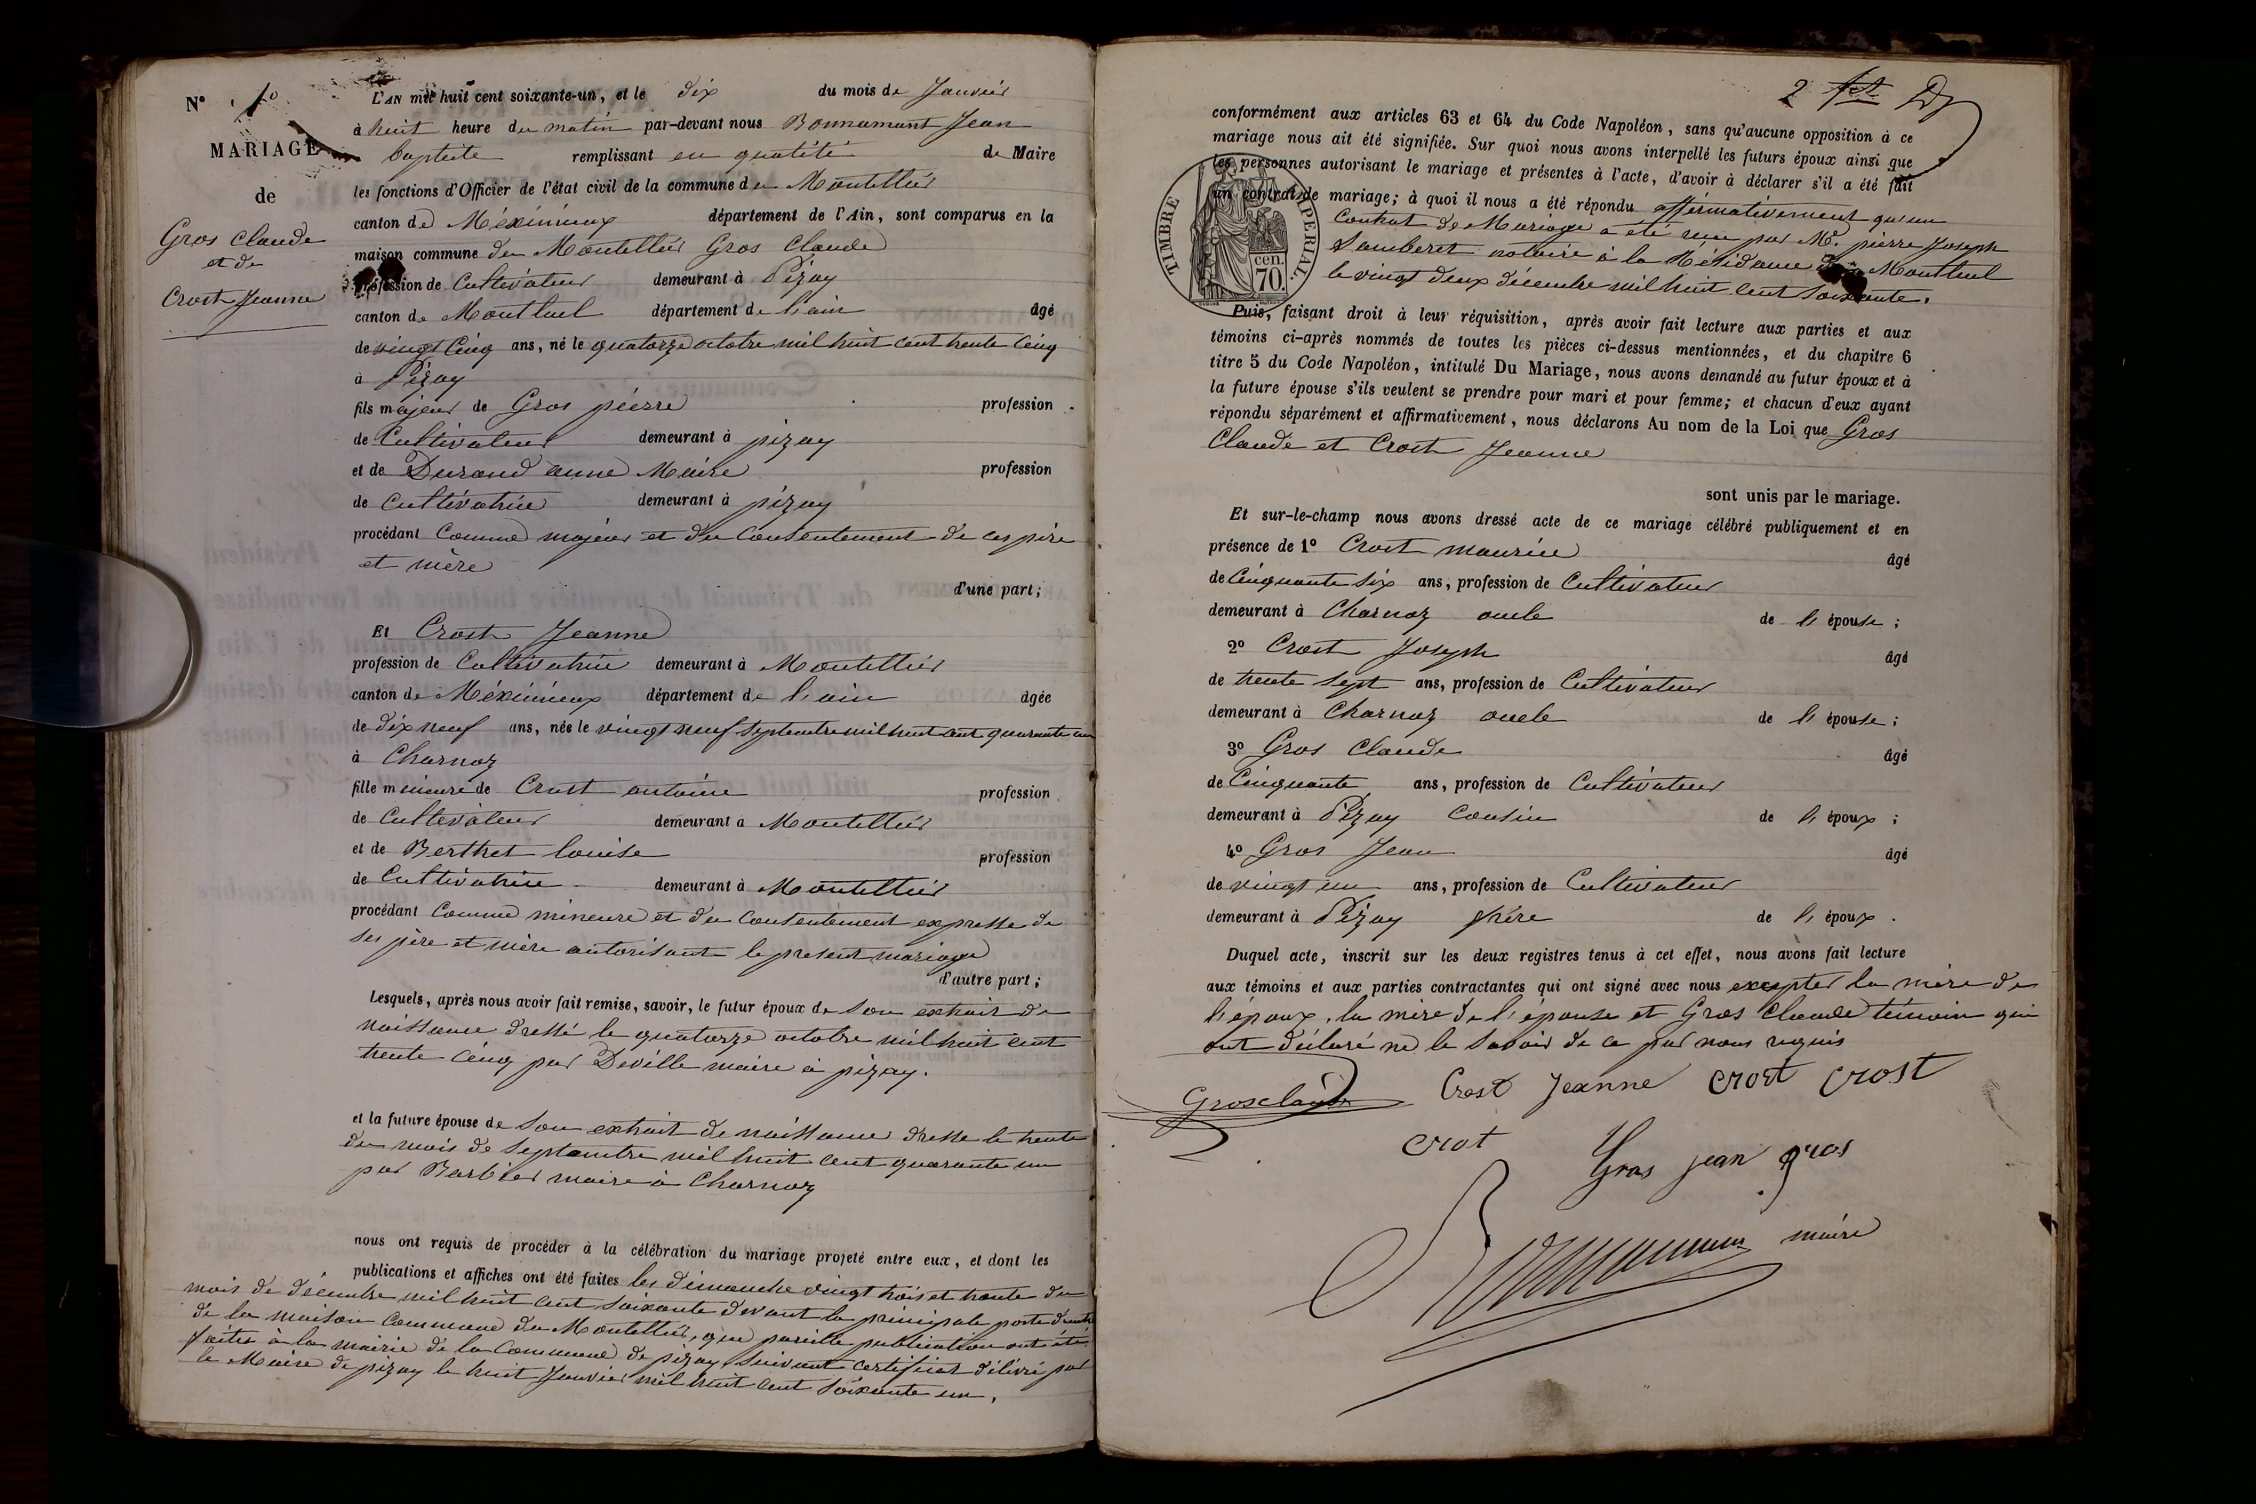 N° 1°
MARIAGE
de
Gros Claude
et de
Crost Jeanne
L'AN mil huit cent soixante-un, et le dix du mois de Janvier
à huit heure du matin par-devant nous Bonnamant Jean
baptiste remplissant en qualité de Maire
les fonctions d'Officier de l'état civil de la commune de Montellier
canton de Méximieux département de l'Ain, sont comparus en la
maison commune de Montellier Gros Claude
profession de Cultivateur demeurant à Pizay
canton de Montluel département de l'ain âgé
de vingt Cinq ans, né le quatorze octobre mil huit cent trente Cinq
à Pizay
fils majeur de Gros pierre profession
de Cultivateur demeurant à pizay
et de Durand anne Marie profession
de Cultivatrice demeurant à pizay
procédant Comme majeur et du Consentement de ces père
et mère
d'une part;
Et Crost Jeanne
profession de Cultivatrice demeurant à Montellier
canton de Méximieux département de l'ain âgée
de dix neuf ans, née le vingt neuf Septembre mil huit cent quarante un
à Charnoz
fille mineure de Crost antoine profession
de Cultivateur demeurant à Montellier
et de Berthet louise profession
de Cultivatrice demeurant à Montellier
procédant Comme mineure et du Consentement expresse de
ses père et mère autorisant le present mariage
d'autre part;
Lesquels, après nous avoir fait remise, savoir, le futur époux de Son extrait de
naissance dressé le quatorze octobre mil huit cent
trente cinq par Déville maire à pizay.
et la future épouse de Son extrait de naissance dresse le trente
du mois de Septembre mil huit cent quarante un
par Barbier maire à Charnoz
nous ont requis de procéder à la célébration du mariage projeté entre eux, et dont les
publications et affiches ont été faites les dimanche vingt trois et trente du
mois de décembre mil huit cent soixante devant la principale porte d'entrée
de la maison Commune du Montellier, que pareille publication ont été
faites à la mairie de la Commune de pizay Suivant certificat délivré par
le Maire de pizay le huit Janvier mil huit cent soixante un.
2
conformément aux articles 63 et 64 du Code Napoléon, sans qu'aucune opposition à ce
mariage nous ait été signifiée. Sur quoi nous avons interpellé les futurs époux ainsi que
les personnes autorisant le mariage et présentes à l'acte, d'avoir à déclarer s'il a été fait
un contrat de mariage; à quoi il nous a été répondu affirmativement qu'un
TIMBRE IMPERIAL
70. cen.
Contrat de Mariage a été reçu par Me. pierre Joseph
notaire à la Résidence de Montluel
le vingt deux décembre mil huit cent soixante.
Puis, faisant droit à leur réquisition, après avoir fait lecture aux parties et aux
témoins ci-après nommés de toutes les pièces ci-dessus mentionnées, et du chapitre 6
titre 5 du Code Napoléon, intitulé Du Mariage, nous avons demandé au futur époux et à
la future épouse s'ils veulent se prendre pour mari et pour femme; et chacun d'eux ayant
répondu séparément et affirmativement, nous déclarons Au nom de la Loi que Gros
Claude et Crost Jeanne
sont unis par le mariage.
Et sur-le-champ nous avons dressé acte de ce mariage célébré publiquement et en
présence de 1° Crost maurice âgé
de Cinquante Six ans, profession de Cultivateur
demeurant à Charnoz oncle de l'épouse;
2° Crost Joseph âgé
de trente Sept ans, profession de Cultivateur
demeurant à Charnoz oncle de l'épouse;
3° Gros Claude âgé
de Cinquante ans, profession de Cultivateur
demeurant à Pizay Cousin de l'époux;
4° Gros Jean âgé
de vingt un ans, profession de Cultivateur
demeurant à Pizay frère de l'époux.
Duquel acte, inscrit sur les deux registres tenus à cet effet, nous avons fait lecture
aux témoins et aux parties contractantes qui ont signé avec nous excepter la mère de
l'époux, la mère de l'épouse et Gros Claude témoin qui
ont déclaré ne le Savoir de ce par nous requis
Grosclaude Crost Jeanne crost crost
crot Gros jean gros
Bonnamant maire